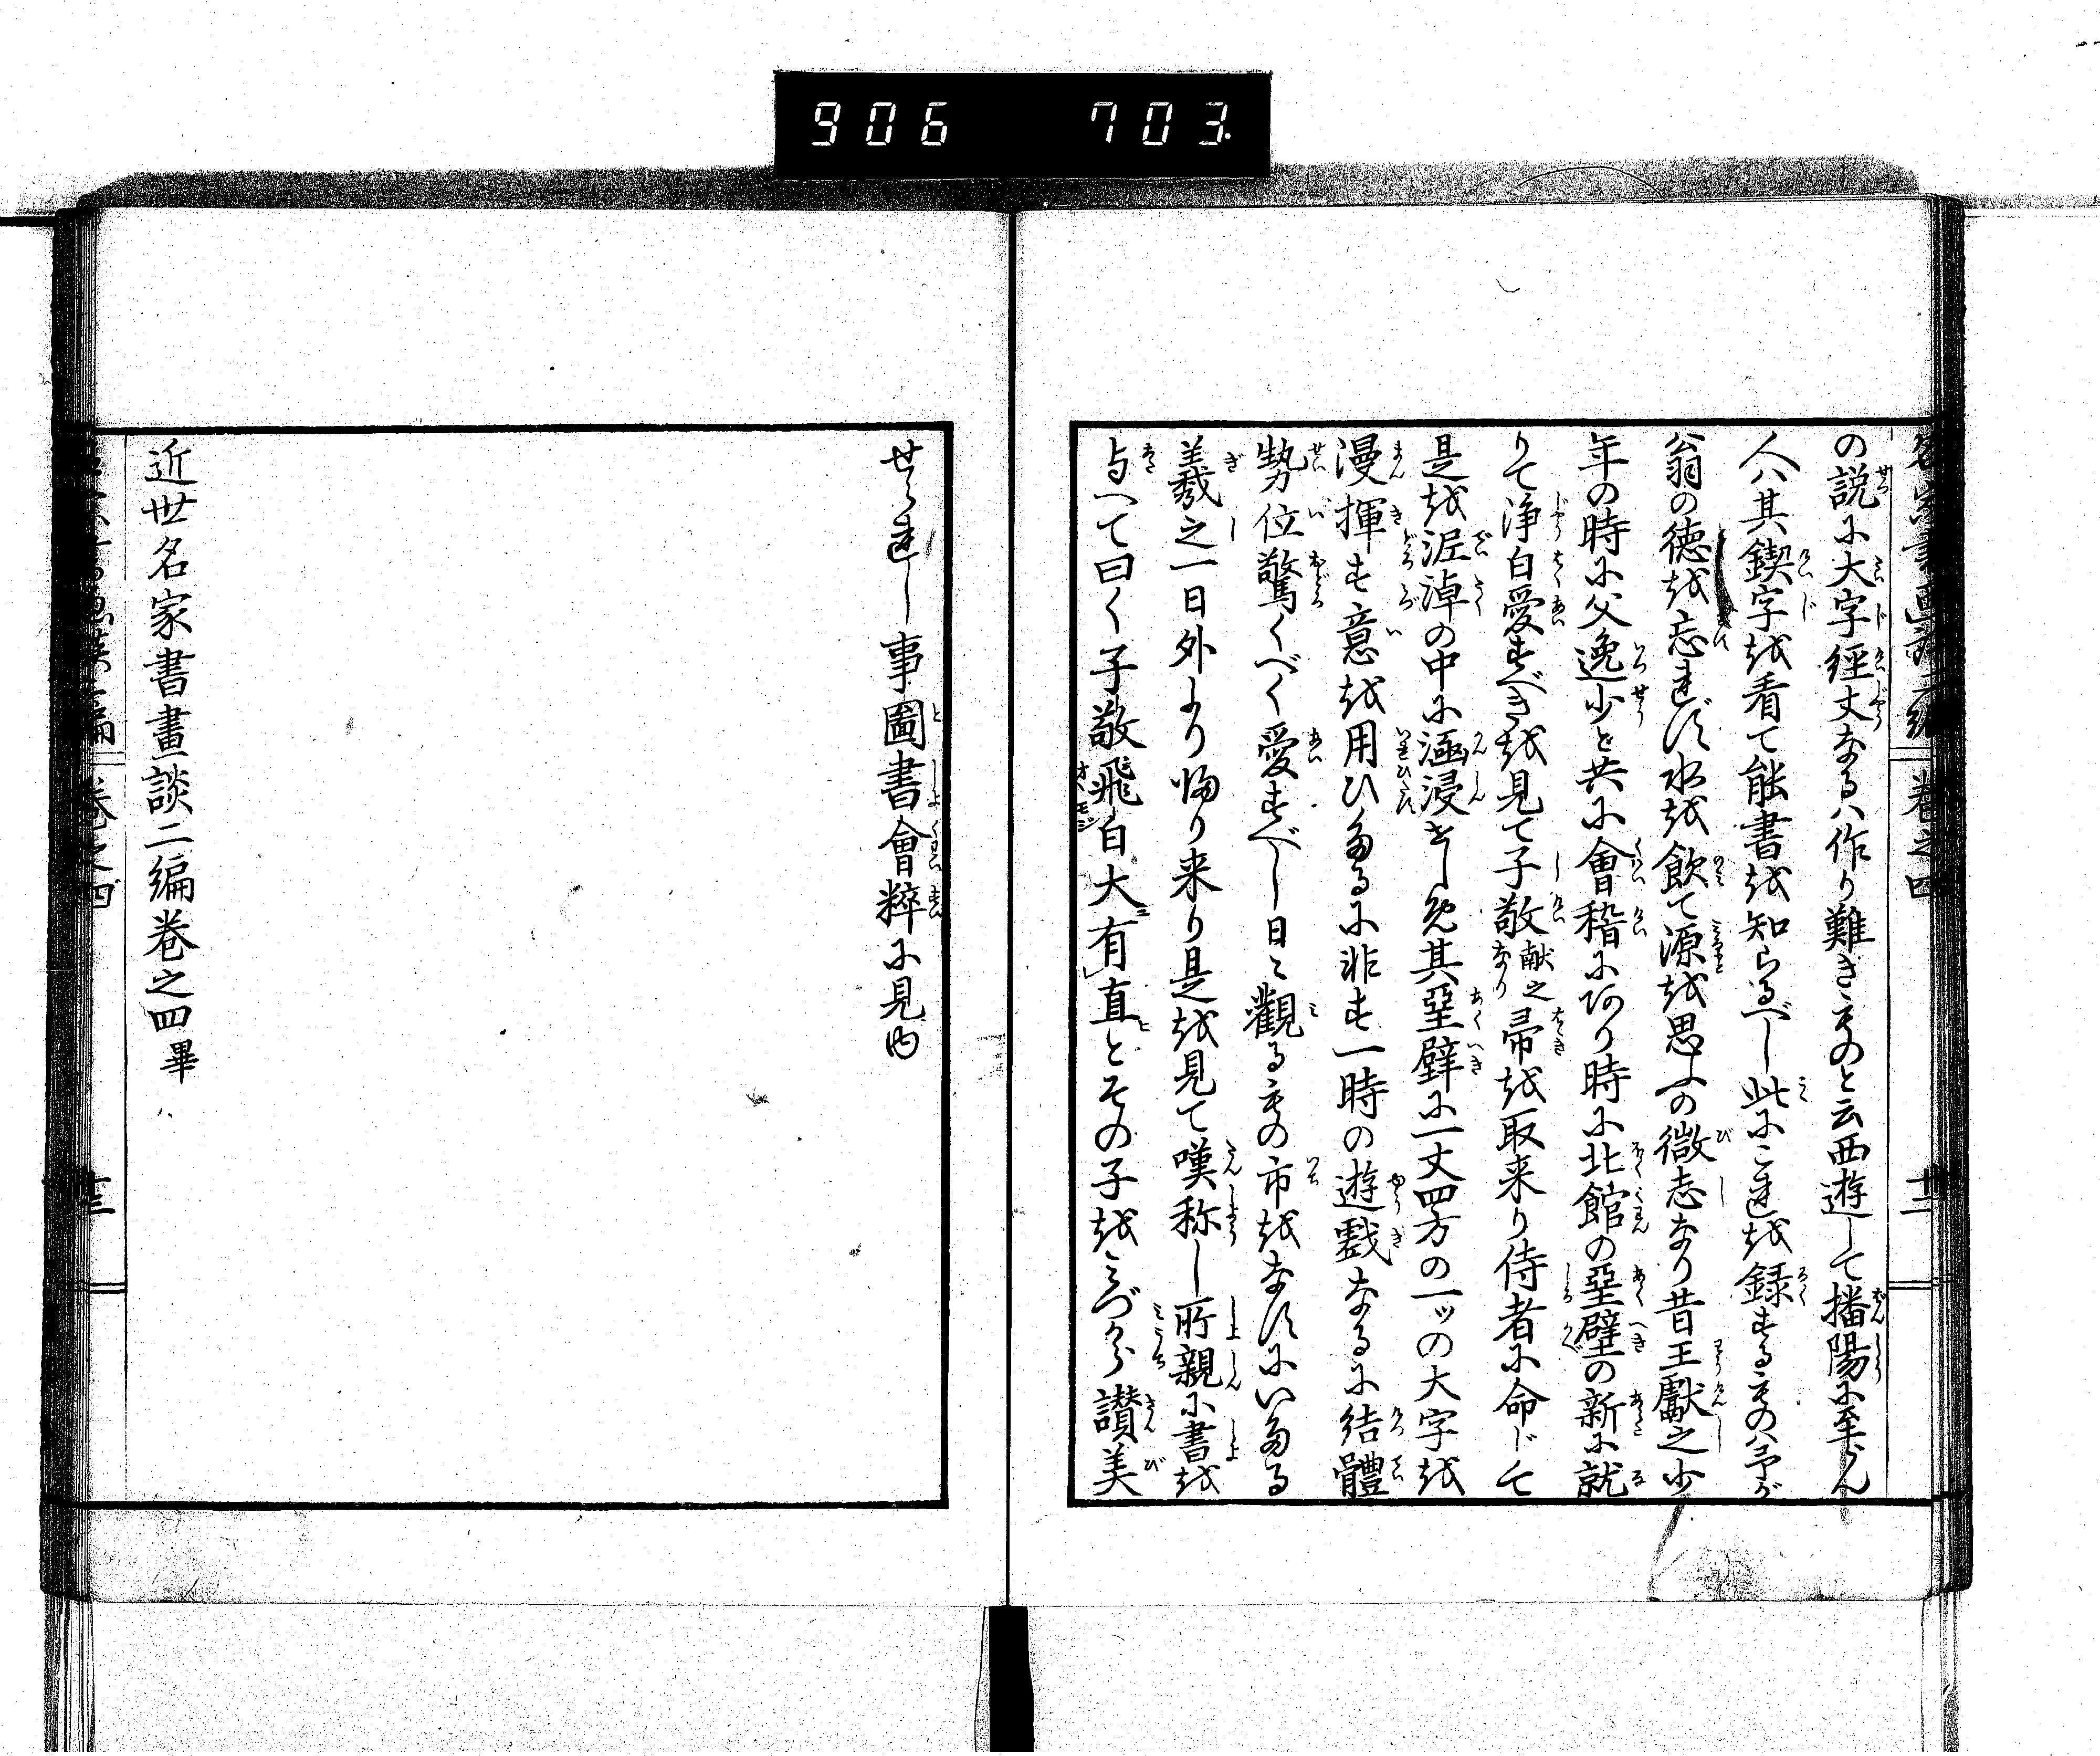 906 703
の説に大字径丈なるハ作り難きものと云西遊して播陽に至らん
人ハ其鍥字を看て能書を知らるべし此にこれを録するものハ予が
翁の徳を忘れず水を飲て源を思ふの微志なり昔王獻之少
年の時に父逸少と共に會稽にあり時に北館の堊壁の新に就
りて浄白愛すべきを見て子敬献之なり帚を取来り侍者に命じて
是を泥淖の中に涵浸せしめ其堊壁に一丈四方の一ツの大字を
漫揮す意を用ひたるに非す一時の遊戲なるに結體
勢位驚くべく愛すべし日〻觀るもの市をなすにいたる
羲之一日外より帰り来り是を見て嘆称し所親に書を
与へて曰く子敬飛白大有直とその子をみづから讃美
巻之四
せられし事圖書會粹に見ゆ
近世名家書畫談二編巻之四畢